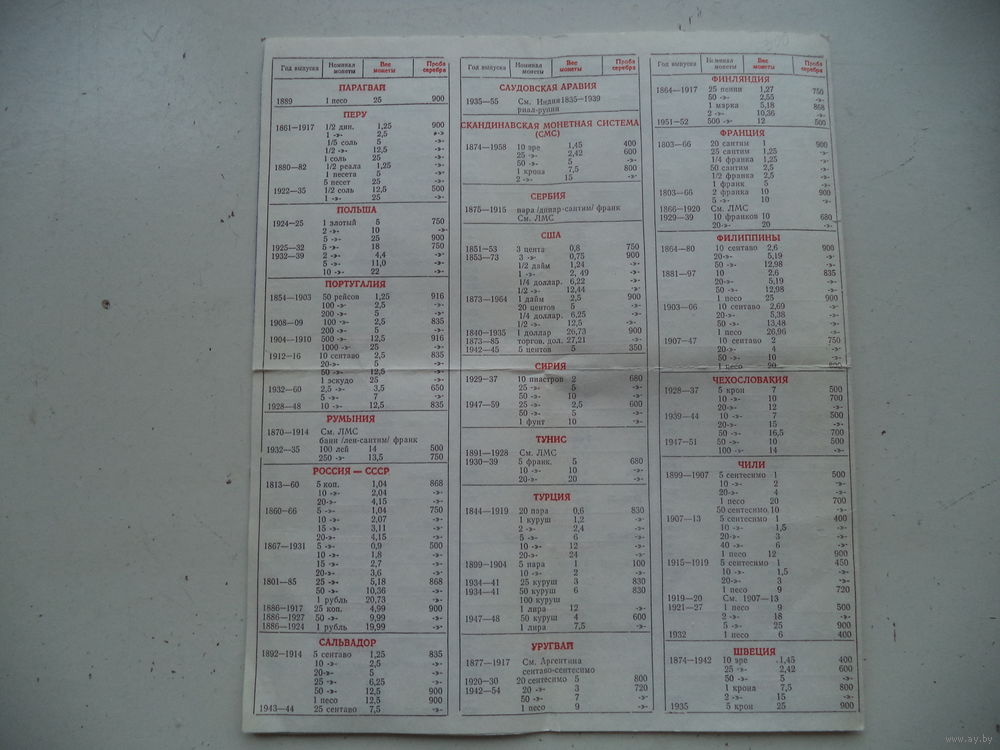 Год выпуска Номинал монеты Вес монеты Проба серебра
ПАРАГВАЙ
1889 1 песо 25 900
ПЕРУ
1861—17 1/2 дин. 1,25 900
1 -»- 2,5 -»-
1/5 соль 5 -»-
1/2 -»- 12,5 -»-
1 соль 25 -»-
1880—82 1/2 реала 1,25 -»-
1 песета 5 -»-
5 песет 25 -»-
1922—35 1/2 соль 12,5 500
1 -»- 25 -»-
ПОЛЬША
1924—25 1 злотый 5 750
2 -»- 10 -»-
5 -»- 25 900
1925—32 5 -»- 18 750
1932—39 2 -»- 4,4 -»-
5 -»- 11,0 -»-
10 -»- 22 -»-
ПОРТУГАЛИЯ
1854—1903 50 рейсов 1,25 916
100 -»- 2,5 -»-
200 -»- 5 -»-
1908—09 100 -»- 2,5 835
200 -»- 5 -»-
1904—1910 500 -»- 12,5 916
1000 -»- 25 -»-
1912—16 10 сентаво 2,5 835
20-»- 5 -»-
50 -»- 12,5 -»-
1 эскудо 25 -»-
1932—60 2,5 -»- 3,5 650
5 -»- 7 -»-
1928—48 10 -»- 12,5 835
РУМЫНИЯ
1870—1914 См. ЛМС
бани /лен-сантим/ франк
1932—35 100 лей 14 500
250 -»- 13,5 750
РОССИЯ — СССР
1813—60 5 коп. 1,04 868
10 -»- 2,04 -»-
20-»- 4,15 -»-
1860—66 5 -»- 1,04 750
10 -»- 2,07 -»-
15 -»- 3,11 -»-
20-»- 4,15 -»-
1867—1931 5 -»- 0,9 500
10 -»- 1,8 -»-
15 -»- 2,7 -»-
20-»- 3,6 -»-
1801—85 25 -»- 5,18 868
50 -»- 10,36 -»-
1 рубль 20,73 -»-
1886—1917 25 коп. 4,99 900
1886—1927 50 -»- 9,99 -»-
1886—1924 1 рубль 19,99 -»-
САЛЬВАДОР
1892—1914 5 сентаво 1,25 835
10 -»- 2,5 -»-
20-»- 5 -»-
25 -»- 6,25 -»-
50 -»- 12,5 900
1 песо 12,5 900
1943—44 25 сентаво 7,5 -»-
Год выпуска Номинал монеты Вес монеты Проба серебра
САУДОВСКАЯ АРАВИЯ
1935—55 См. Индия 1835—1939
риал-рупия
СКАНДИНАВСКАЯ МОНЕТНАЯ СИСТЕМА
(СМС)
1874—1958 10 эре 1,45 400
25 -»- 2,42 600
50 -»- 5 -»-
1 крона 7,5 800
2 -»- 15 -»-
СЕРБИЯ
1875—1915 пара /динар-сантим/ франк
См. ЛМС
США
1851—53 3 цента 0,8 750
1853—73 3 -»- 0,75 900
1/2 дайм 1,24 -»-
1 -»- 2, 49 -»-
1/4 доллар. 6,22 -»-
1/2 -»- 12,44 -»-
1873—1964 1 дайм 2,5 900
20 центов 5 -»-
1/4 доллар. 6,25 -»-
1/2 -»- 12,5 -»-
1840—1935 1 доллар 26,73 900
1873—85 торгов. дол. 27,21 -»-
1942—45 5 центов 5 350
СИРИЯ
1929—37 10 пиастров 2 680
25 -»- 5 -»-
50 -»- 10 -»-
1947—59 25 -»- 2,5 600
50 -»- 5 -»-
1 фунт 10 -»-
ТУНИС
1891—1928 См. ЛМС
1930—39 5 франк. 5 680
10 -»- 10 -»-
20-»- 20 -»-
ТУРЦИЯ
1844—1919 20 пара 0,6 830
1 куруш 1,2 -»-
2 -»- 2,4 -»-
5 -»- 6 -»-
10 -»- 12 -»-
20-»- 24 -»-
1899—1904 5 пара 1 100
10 -»- 2 -»-
1934—41 25 куруш 3 830
1934—41 50 куруш 6 830
100 куруш
1 лира 12 -»-
1947—48 50 куруш 4 600
1 лира 7,5 -»-
УРУГВАЙ
1877—1917 См. Аргентина
сентаво-сентесимо
1920—30 20 сентесимо 5 800
1942—54 20 -»- 3 720
50 -»- 7 -»-
1 песо 9 -»-
Год выпуска Номинал монеты Вес монеты Проба серебра
ФИНЛЯНДИЯ
1864—1917 25 пенни 1,27 750
50 -»- 2,55 -»-
1 марка 5,18 868
2 -»- 10,36 -»-
1951—52 500 -»- 12 500
ФРАНЦИЯ
1803—66 20 сантим 1 900
25 сантим 1,25 -»-
1/4 франка 1,25 -»-
50 сантим 2,5 -»-
1/2 франка 2,5 -»-
1 франк 5 -»-
1803—66 2 франка 10 900
5 -»- 10 -»-
1866—1920 См. ЛМС
1929—39 10 франков 10 680
20-»- 20 -»-
ФИЛИППИНЫ
1864—80 10 сентаво 2,6 900
20-»- 5,19 -»-
50 -»- 12,98 -»-
1881—97 10 2,6 835
20-»- 5,19 -»-
50 -»- 12,98 -»-
1 песо 25 900
1903—06 10 сентаво 2,69 -»-
20-»- 5,38 -»-
50 -»- 13,48 -»-
1 песо 26,96 -»-
1907—47 10 сентаво 2 750
20-»- 4 -»-
50 -»- 10 -»-
1 песо
ЧЕХОСЛОВАКИЯ
1928—37 5 крон 7 500
10 -»- 10 700
20-»- 12 -»-
1939—44 10 -»- 7 500
20-»- 15 -»-
50 -»- 16,5 700
1947—51 50 -»- 10 500
100 -»- 14 -»-
ЧИЛИ
1899—1907 5 сентесимо 1 500
10 -»- 2 -»-
20-»- 4 -»-
1 песо 20 700
50 сентесимо 10 -»-
1907—13 5 сентесимо 1 400
10 -»- 1,5 -»-
20-»- 3 -»-
40 -»- 6 -»-
1 песо 12 900
1915—1919 5 сентесимо 1 450
10 -»- 1,5 -»-
20-»- 3 -»-
1 песо 9 720
1919—20 См. 1907—13
1921—27 1 песо 9 500
2 -»- 18 -»-
5 -»- 25 900
1932 1 песо 6 400
ШВЕЦИЯ
1874—1942 10 эре 1,45 400
25 -»- 2,42 600
50 -»- 5 -»-
1 крона 7,5 800
2 -»- 15 -»-
1935 5 крон 25 900
www.ay.by